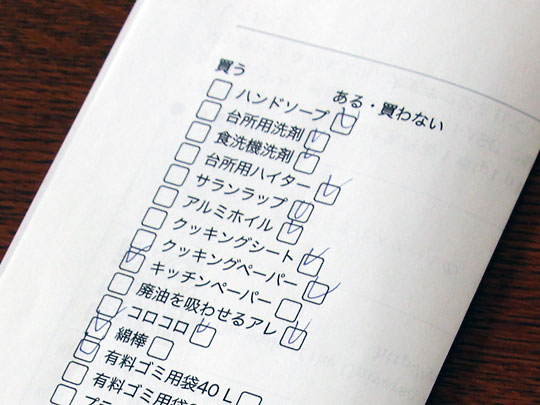 買う
ある・買わない
ハンドソープ
台所用洗剤
食洗機洗剤
台所用ハイター
サランラップ
アルミホイル
クッキングシート
クッキングペーパー
キッチンペーパー
廃油を吸わせるアレ
コロコロ
綿棒
有料ゴミ用袋40 L
有料ゴミ用袋
プラ